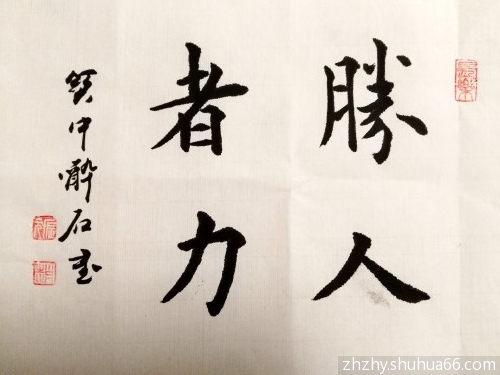 勝人
者力
中醉石书
zhzhy.shuhua66.com